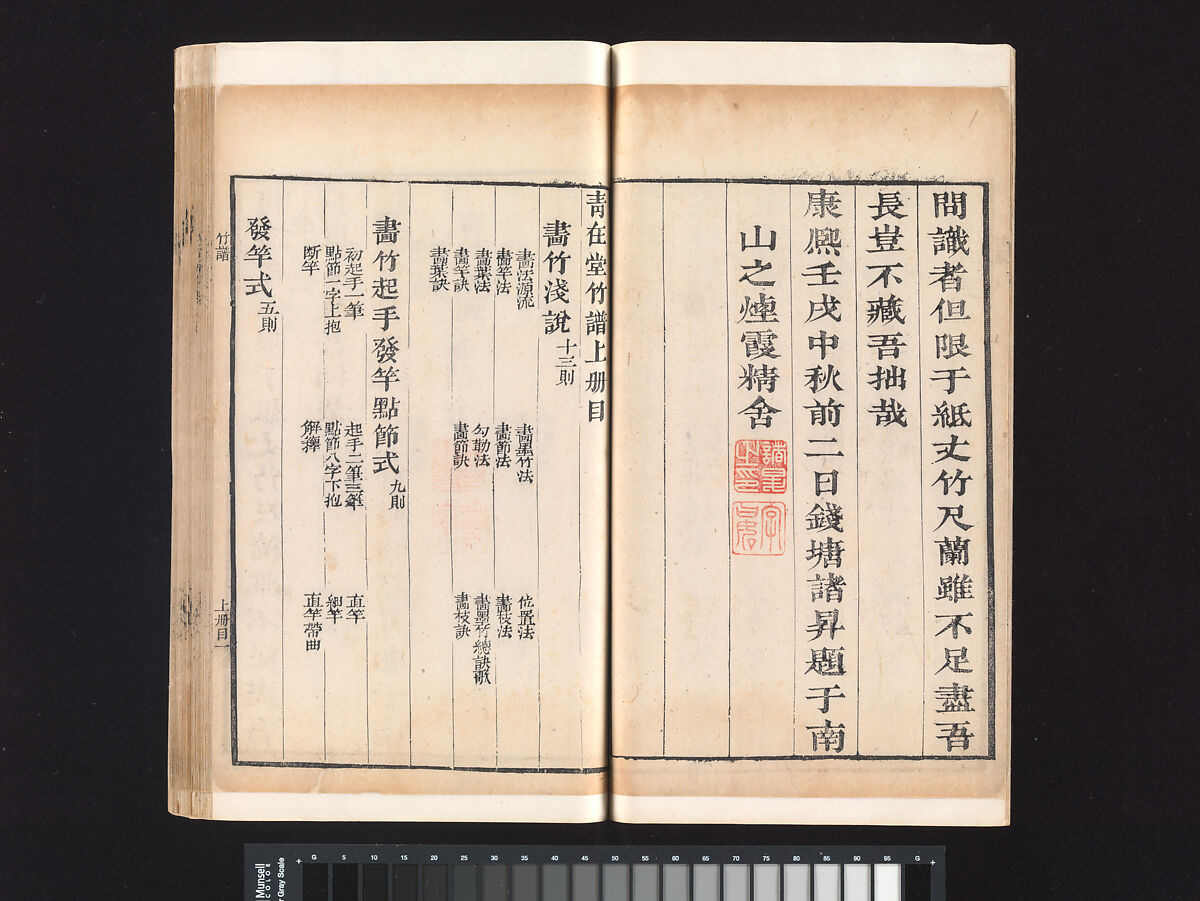 問識者但限于紙丈竹尺蘭雖不足盡吾
長豈不藏吾拙哉
康熈壬戌中秋前二日錢塘諸昇題于南
山之煙霞精舍
青在堂竹譜上册目
畫竹淺說十三則
畫法源流 畫墨竹法 位置法
畫竿法 畫節法 畫枝法
畫葉法 勾勒法 畫墨竹總訣歌
畫竿訣 畫節訣 畫枝訣
畫葉訣
畫竹起手發竿點節式九則
初起手一筆 起手二筆三筆 直竿
點節一字上抱 點節八字下抱 細竿
断竿 解籜 直竿帶曲
發竿式五則
竹譜
上册目
一
Munsell
COLOR
Gray Scale
G 5 10 15 20 25 30 35 40 45 50 55 60 65 70 75 80 85 90 95 G